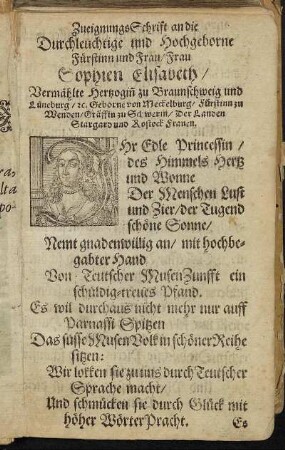 ZueignungsSchrift an die
Durchleuchtige und Hochgeborne
Fürstinn und Frau/Frau
Sophien Elisabeth/
Vermählte Hertzogiñ zu Braunschweig und
Lüneburg/ ꝛc. Geborne von Meckelburg/ Fürstinn zu
Wenden/Gräffin zu Schwerin/ Der Landen
Stargard und Rostock Frauen.
IHr Edle Princessin/
des Himmels Hertz
und Wonne
Der Menschen Lust
und Zier/der Tugend
schöne Sonne/
Nemt gnadenwillig an/ mit hochbe-
gabter Hand
Von Teutscher MusenZunfft ein
schüldig-treues Pfand.
Es wil durchaus nicht mehr nur auff
Parnassi Spitzen
Das süsse MusenVolk in schöner Reihe
sitzen:
Wir lokken sie zu uns durch Teutscher
Sprache macht/
Und schmücken sie durch Glück mit
höher WörterPracht.
Es